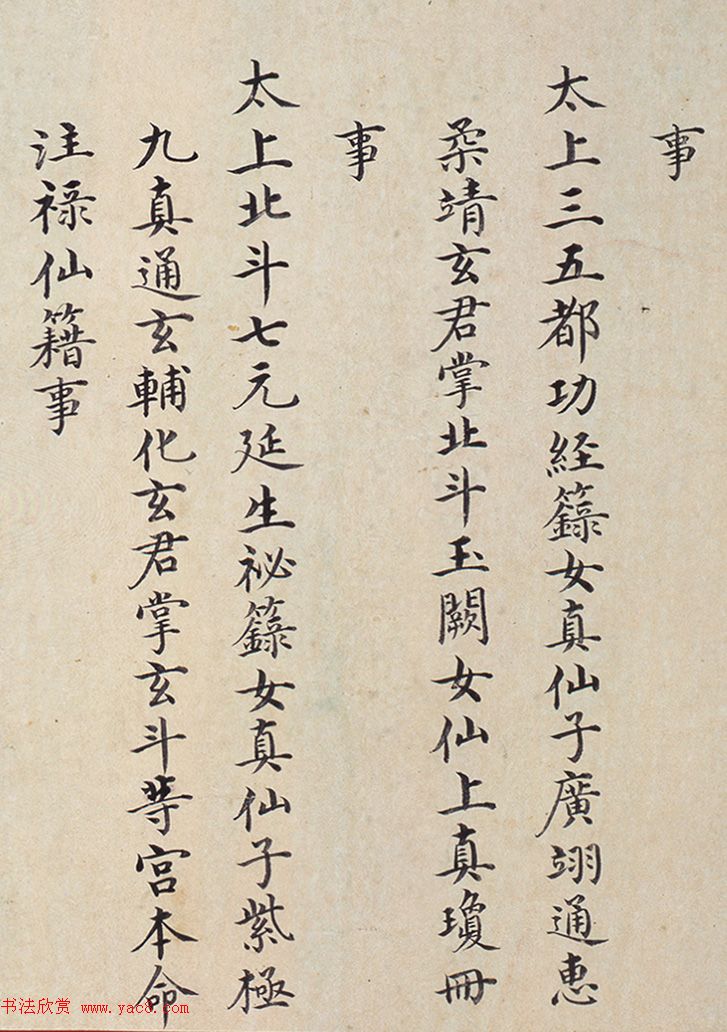 事
太上三五都功經籙女真仙子廣翊通惠
柔靖玄君掌北斗玉闕女仙上真瓊冊
事
太上北斗七元延生祕籙女真仙子紫極
九真通玄輔化玄君掌玄斗華宮本命
注祿仙籍事
书法欣赏 www.yac8.com